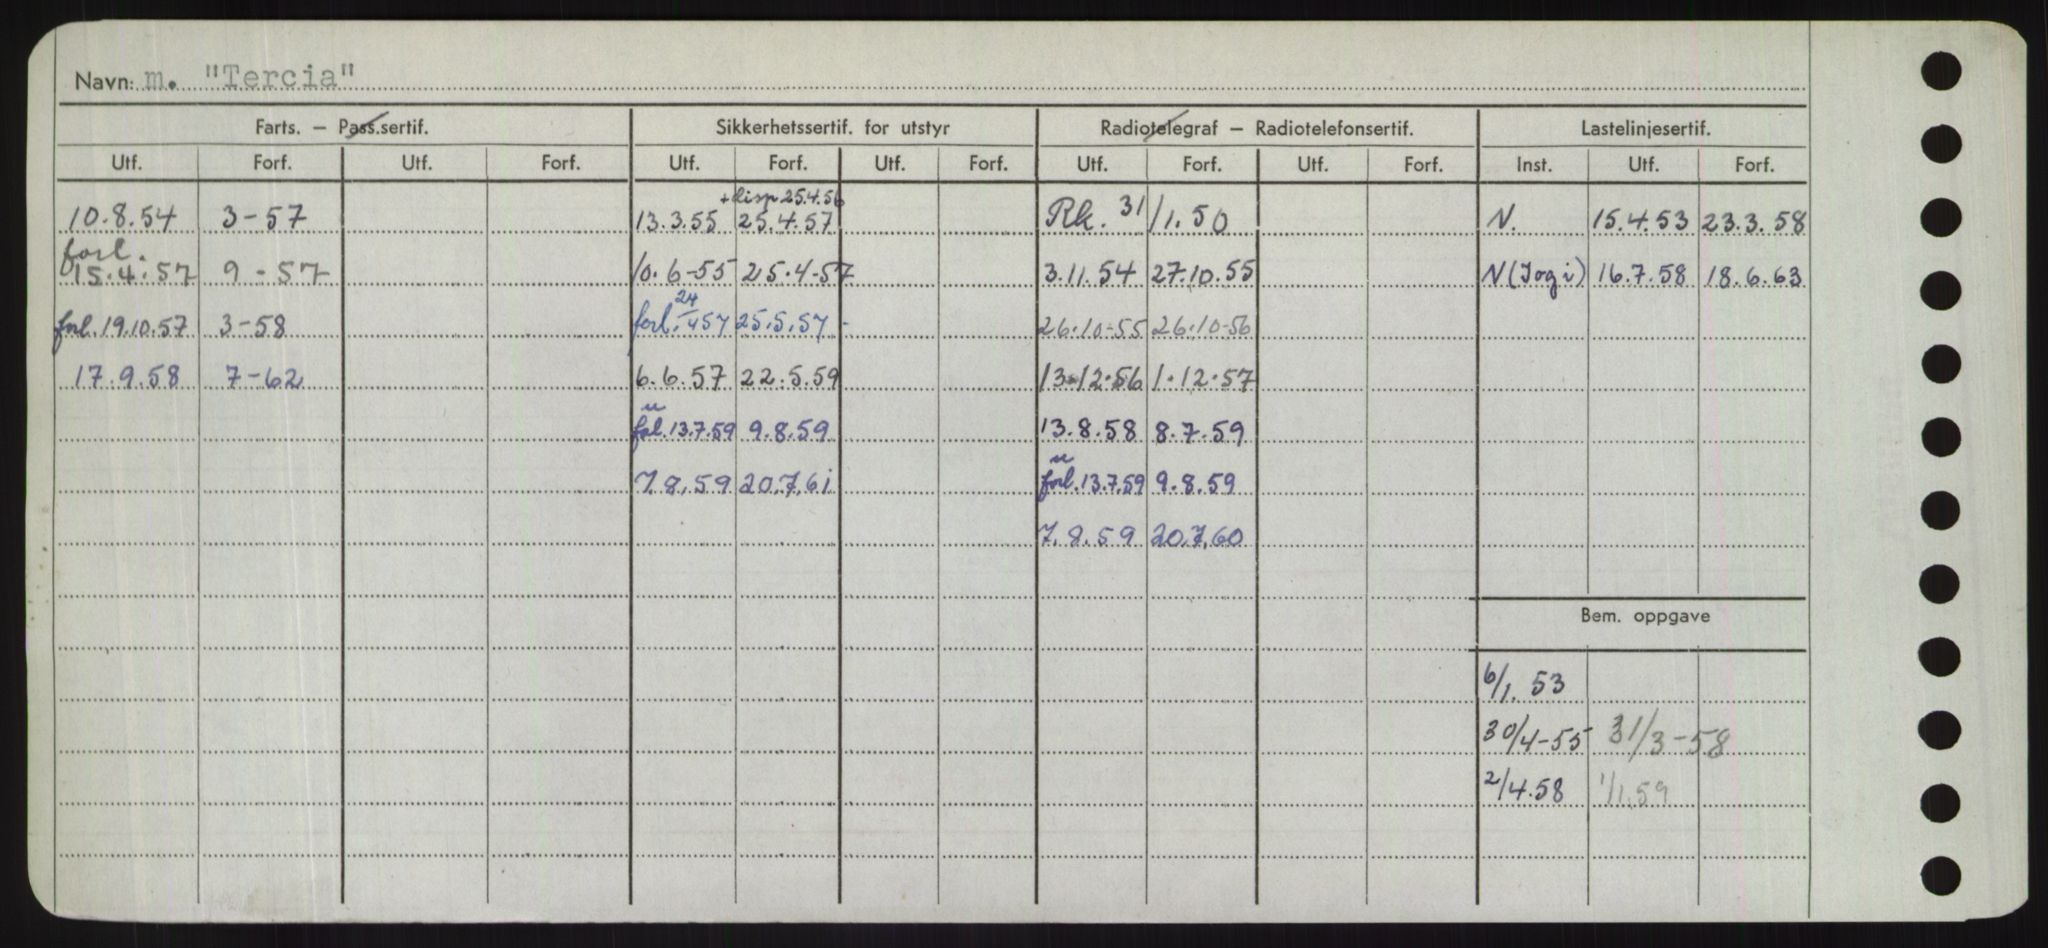 Navn: m. "Tercia"
Farts. – Pass.sertif. Sikkerhetssertif. for utstyr Radiotelegraf – Radiotelefonsertif. Lastelinjesertif.
Utf. Forf. Utf. Forf. Utf. Forf. Utf. Forf. Utf. Forf. Utf. Forf. Inst. Utf. Forf.
+disp 25.4.56
10.8.54 3-57 13.3.55 25.4.57 Rk. 31/1.50 N. 15.4.53 23.3.58
forl.
15.4.57 9-57 10.6-55 25.4-57 3.11.54 27.10.55 N (Jogi) 16.7.58 18.6.63
forl. 19.10.57 3-58 forl. 24/4 57 25.5.57 - 26.10-55 26.10-56
17.9.58 7-62 6.6.57 22.5.59 13.12.56 1.12.57
forl. 13.7.59 9.8.59 13.8.58 8.7.59
7.8.59 20.7.61 forl. 13.7.59 9.8.59
7.8.59 20.7.60
Bem. oppgave
6/1. 53
30/4-55 31/3-58
2/4.58 1/1.59